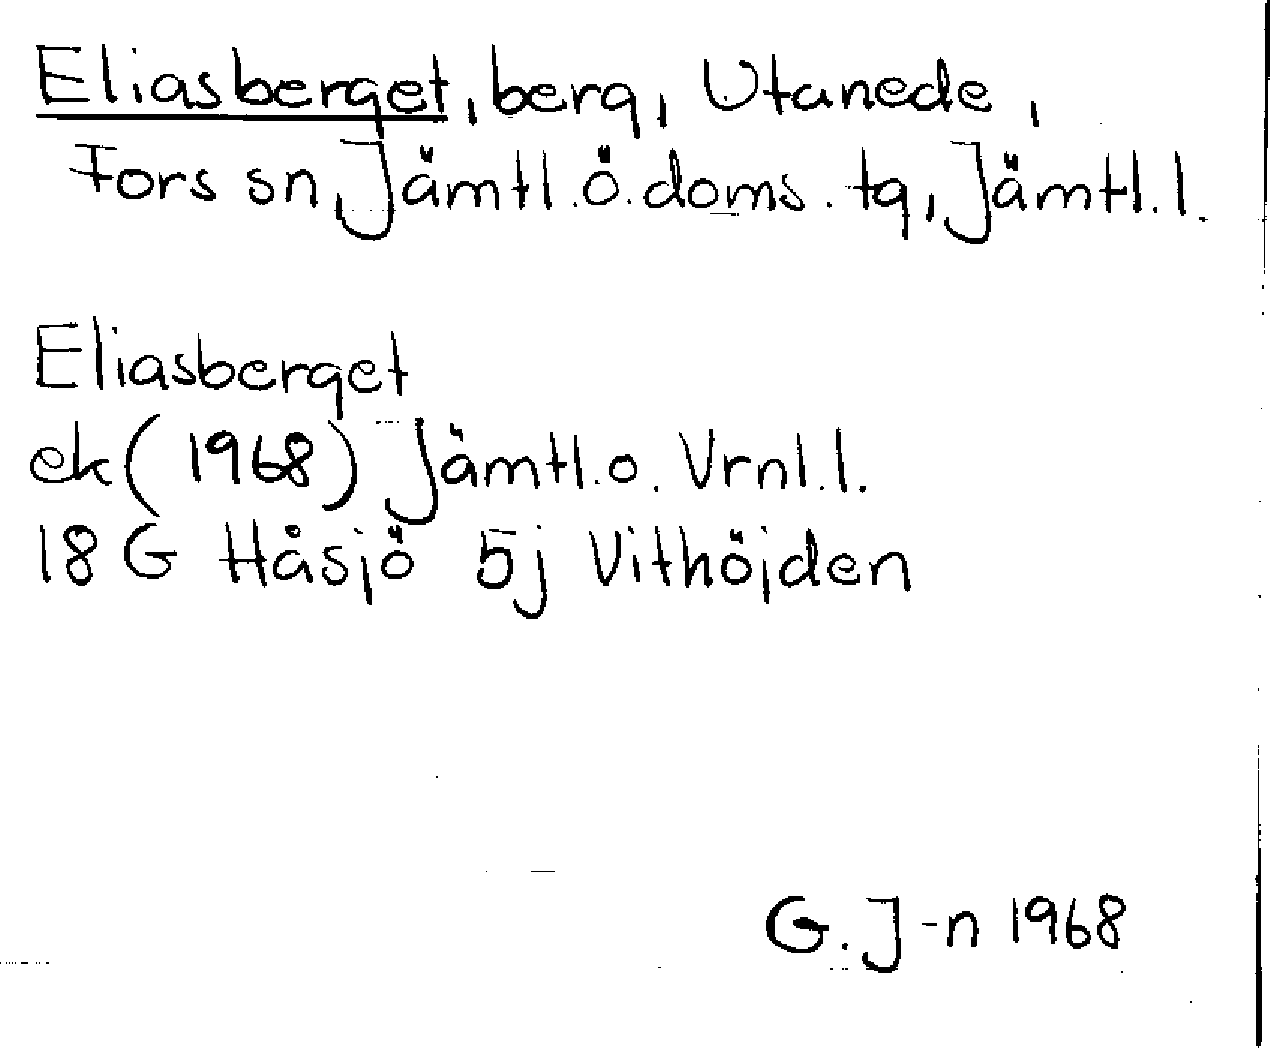 Eliasberget, berg, Utanede,
Fors sn, Jämtl.ö.doms.tg, Jämtl.l.
Eliasberget
ek (1968) Jämtl.o. Vrnl.l.
18 G Håsjö 5j Vithöjden
G.J-n 1968